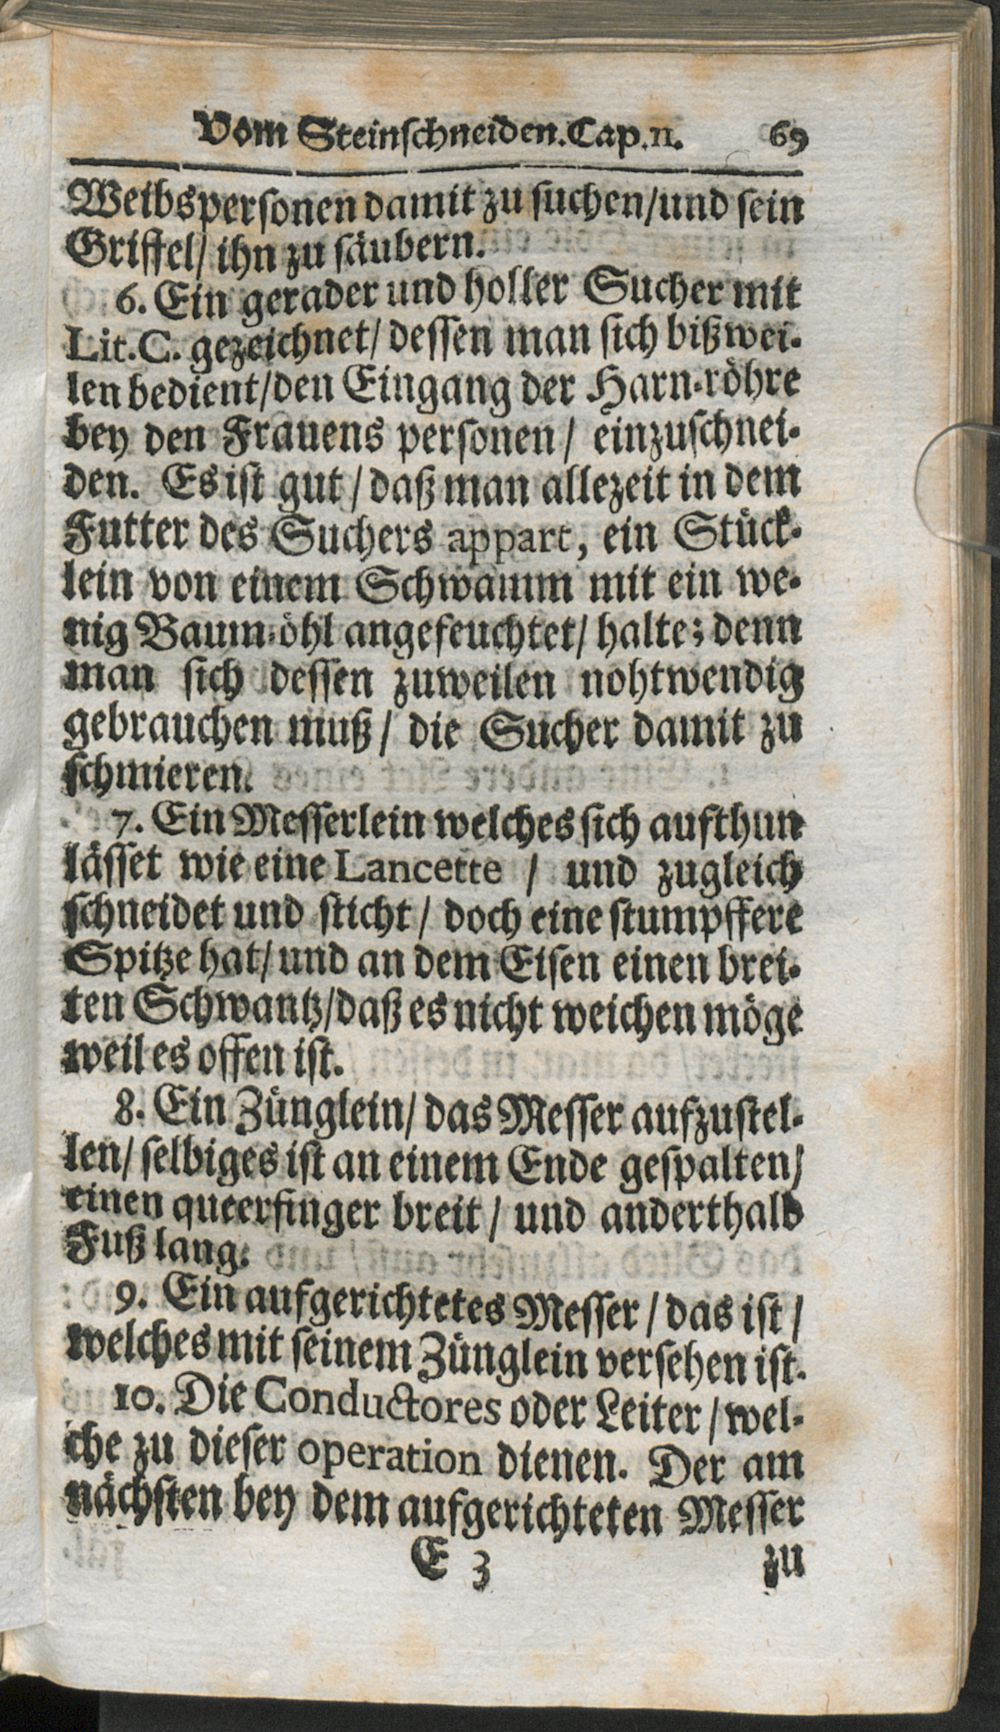 Vom Steinschneiden. Cap. 11. 69
Weibspersonen damit zu suchen/und sein
Griffel/ ihn zu säubern.
6. Ein gerader und holler Sucher mit
Lit. C. gezeichnet/ dessen man sich bißwei-
len bedient/den Eingang der Harn-röhre
bey den Frauens personen / einzuschnei-
den. Es ist gut / daß man allezeit in dem
Futter des Suchers appart, ein Stück-
lein von einem Schwamm mit ein we-
nig Baum-öhl angefeuchtet/ halte; denn
man sich dessen zuweilen nohtwendig
gebrauchen muß / die Sucher damit zu
schmieren.
7. Ein Messerlein welches sich aufthun
lässet wie eine Lancette / und zugleich
schneidet und sticht / doch eine stumpffere
Spitze hat/ und an dem Eisen einen brei-
ten Schwantz/daß es nicht weichen möge
weil es offen ist.
8. Ein Zünglein/ das Messer aufzustel-
len/ selbiges ist an einem Ende gespalten/
einen queerfinger breit / und anderthalb
Fuß lang.
9. Ein aufgerichtetes Messer / das ist /
welches mit seinem Zünglein versehen ist.
10. Die Conductores oder Leiter / wel-
che zu dieser operation dienen. Der am
nächsten bey dem aufgerichteten Messer
E 3 zu